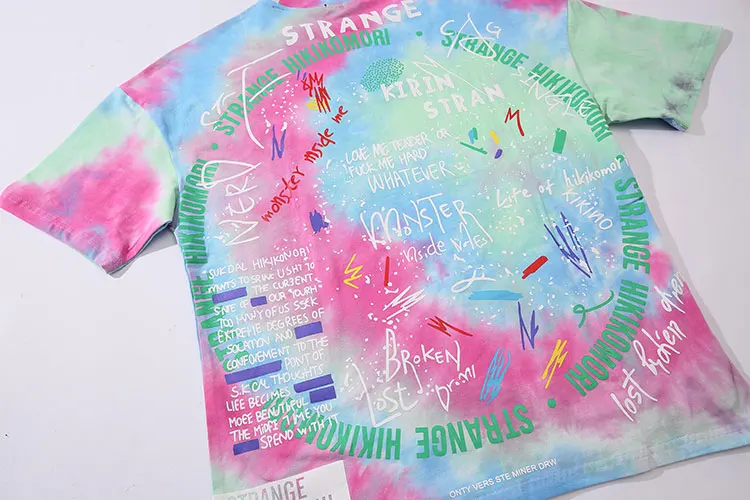 STRANGE
STRANGE HIKIKOMORI • STRANGE HIKIKOMORI • STRANGE HIKIKOMORI • STRANGE HIKIKOMORI • STRANGE HIKIKOMORI •
KIRIN
STRAN
NERD
monster inside me
LOVE ME TENDER OR
FUCK ME HARD
WHATEVER
MONSTER
inside
Life of hikikomori
KIKINO
SUICIDAL HIKIKOMORI
WANTS TO
THE CURRENT
STATE OF OUR YOUTH
TOO MANY OF US SEEK
EXTREME DEGREES OF
ISOLATION AND
CONFINEMENT TO THE
POINT OF
THOUGHTS
LIFE BECOMES
MORE BEAUTIFUL
THE MORE TIME YOU
SPEND WITH IT
BROKEN
Lost
lost broken
STRANGE
ONTY VERS STE MINER DRW